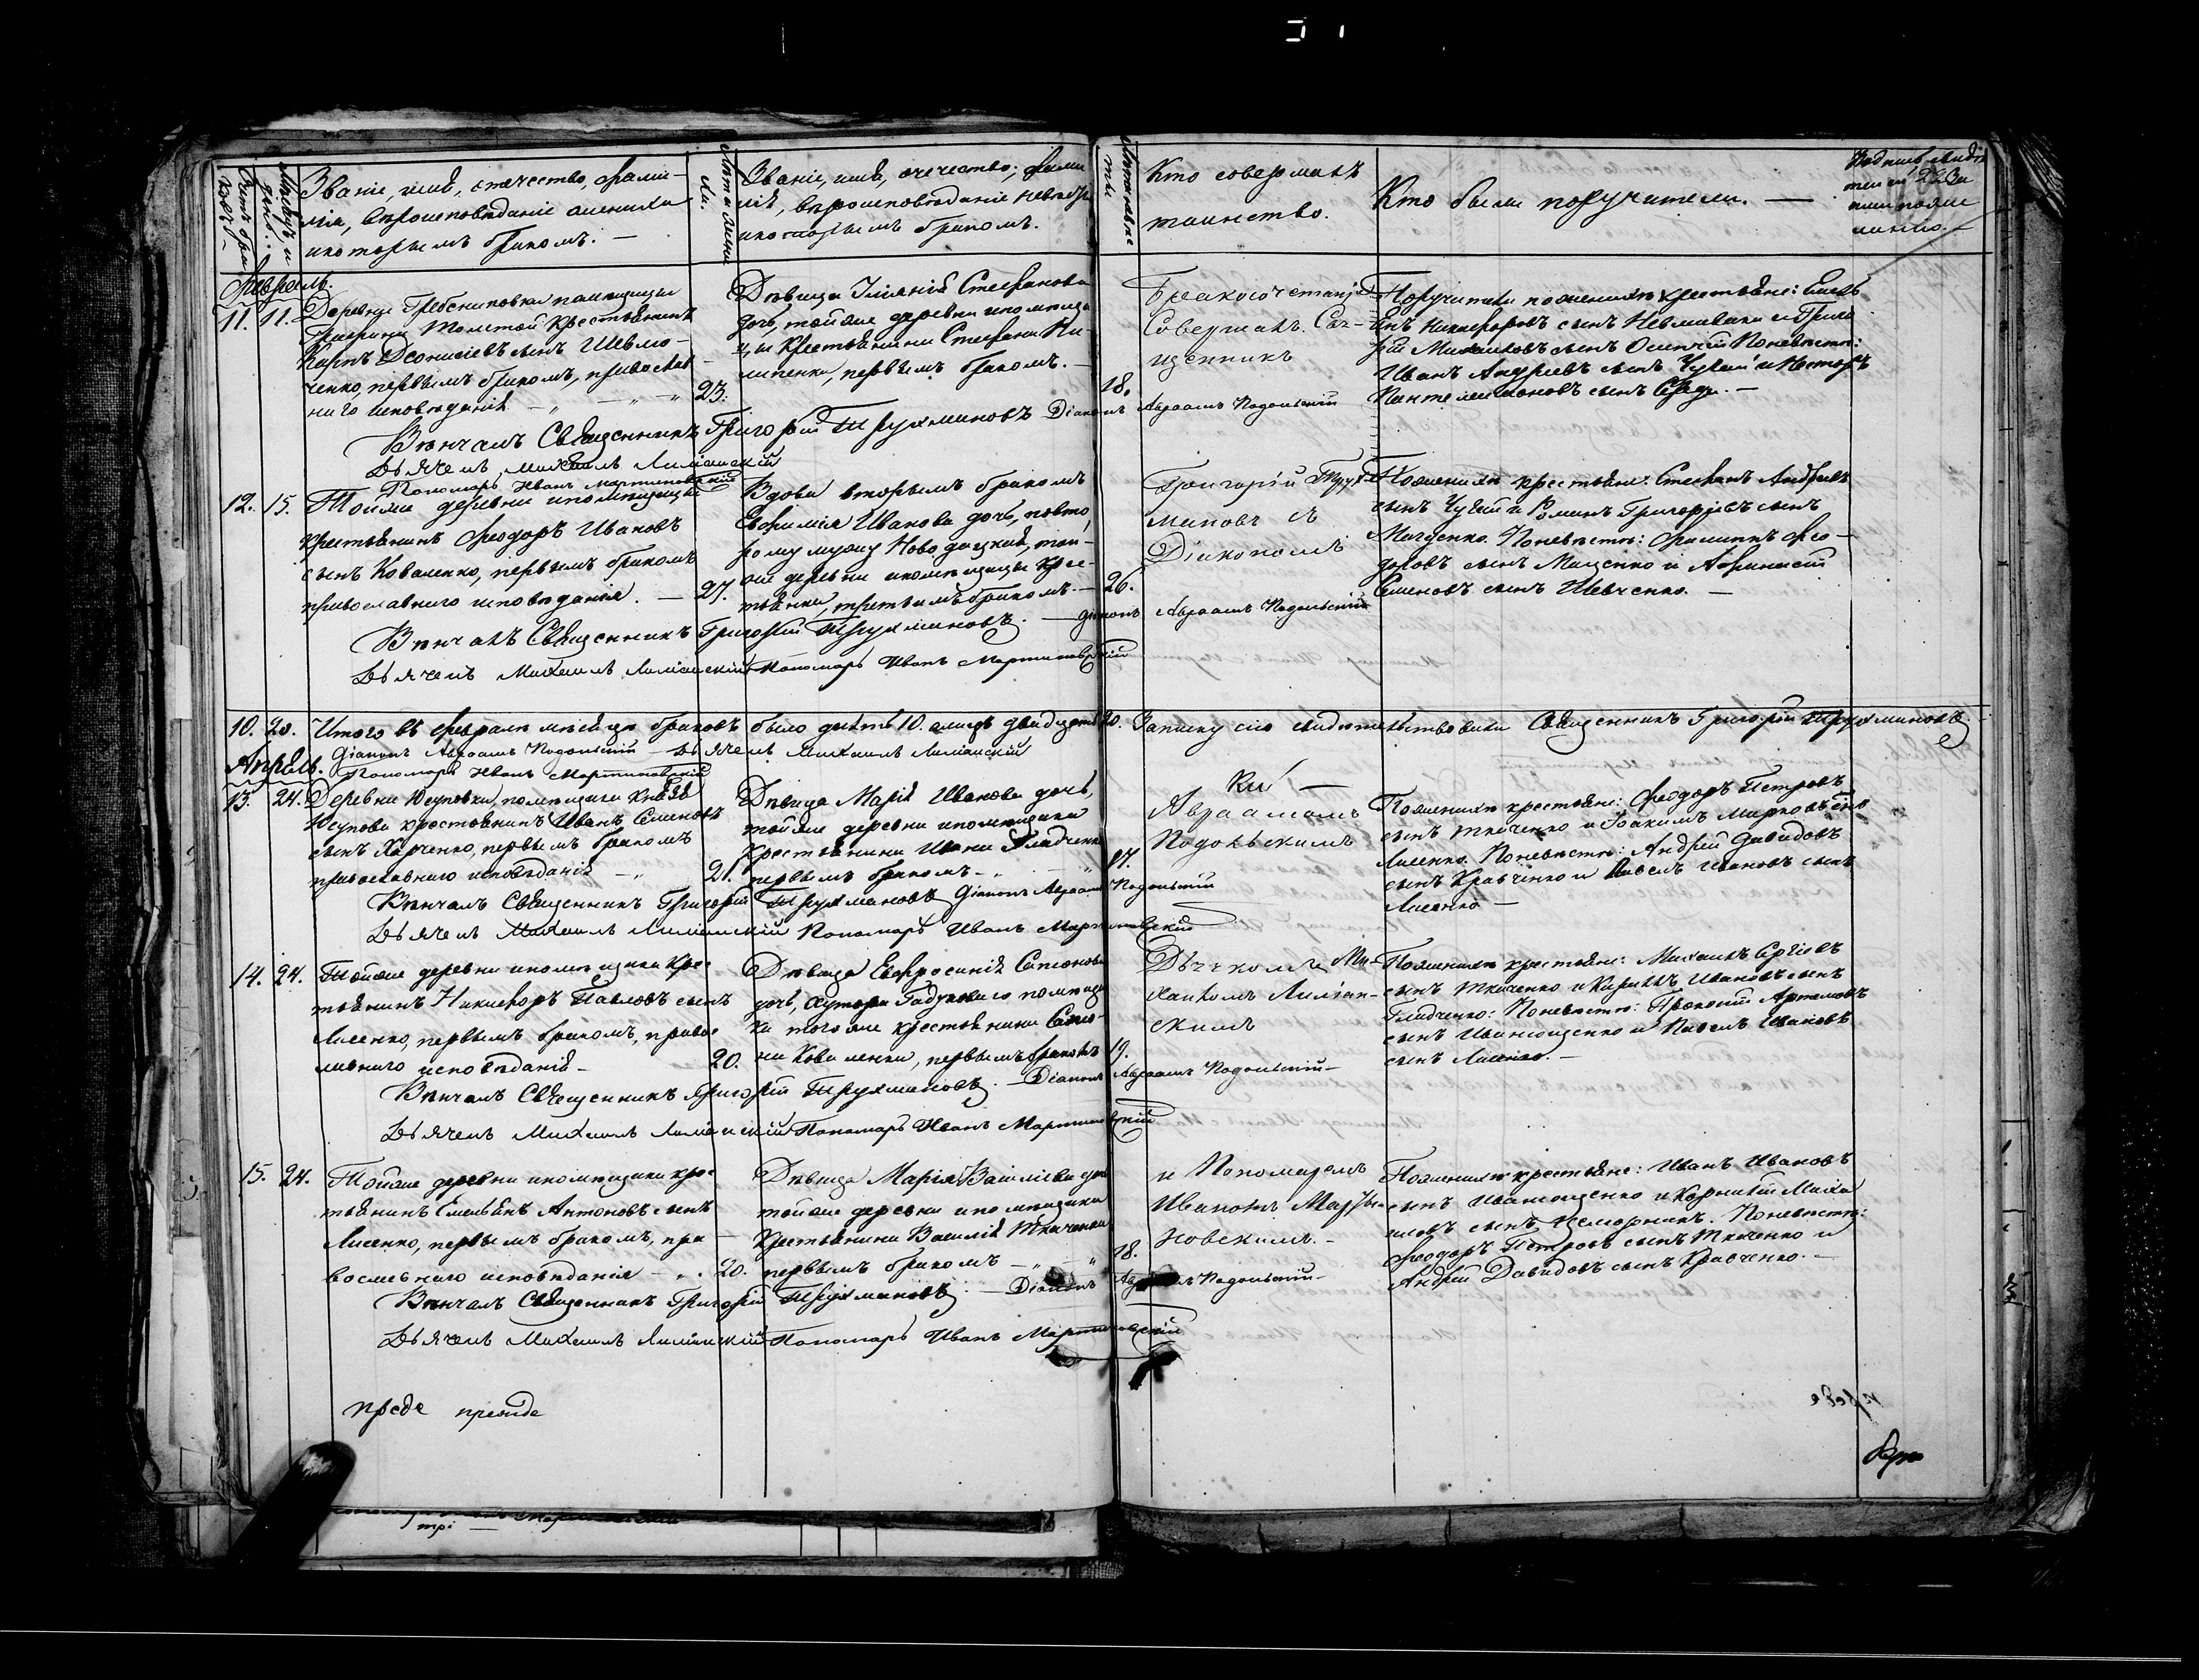 Счетъ бра
ковъ
Мѣсяцъ и
день
Званіе, имя, отечество, фами-
лія, вѣроисповѣданіе жениха
и которымъ бракомъ. —
Лѣта жени
ха.
Званіе, имя, очечество, фами
лія, вѣроисповѣданіе невѣсты
и которымъ бракомъ.
Лѣта невѣс
ты
Кто совершалъ
таинство.
Кто были поручители. —
Февраль.
11. 11. Деревни Гребениковки помѣщицы
Графини Толстой крестьянинъ
Карпъ Деонисіевъ сынъ Шевлю-
ченко, первымъ бракомъ, православ-
наго исповѣданія — 23.
Дѣвица Іулянія Стефанова
дочь, тойже деревни и помѣщи
цы крестьянина Стефана Пи-
липенка, первымъ бракомъ. — 18.
Бракосочетаніе
Совершалъ Свя-
щенникъ
Поручители по женихѣ крестьяне: Емель
янъ Никифоровъ сынъ и Григо
рій Михаиловъ сынъ По невѣстѣ:
Иванъ Андреевъ сынъ Чуприй и Несторъ
Пантелеимоновъ сынъ
Вѣнчалъ Священникъ Григорій Трухмановъ Діаконъ Авраамъ Подольскій
Дьячекъ Михаилъ Лиманскій
Пономарь Иванъ Мартиновскій
12. 15. Тойже деревни и помѣщицы
крестьянинъ Феодоръ Ивановъ
сынъ Коваленко, первымъ бракомъ
православнаго исповѣданія. — 27.
Вдова вторымъ бракомъ
Евфимія Иванова дочь, по вто
рому мужу той-
же деревни и помѣщицы крес-
тьянка, третьимъ бракомъ. — 26.
Григорій Трух-
мановъ съ
Діакономъ
По женихѣ крестьяне: Стефанъ Андреевъ
сынъ и Романъ Григорьевъ сынъ
По невѣстѣ: Филиппъ Фео-
доровъ сынъ Мащенко и Афанасій
Семеновъ сынъ Шевченко. —
Вѣнчалъ Священникъ Григорій Трухмановъ. — Діаконъ Авраамъ Подольскій
Дьячекъ Михаилъ Лиманскій Пономарь Иванъ Мартиновскій
10. 20. Итого въ Февралѣ мѣсяцѣ браковъ было десять 10. а лицъ двадцать 20. Записку сію свидѣтельствовали Священникъ Григорій Трухмановъ
Діаконъ Авраамъ Подольскій — Дьячекъ Михаилъ Лиманскій
Пономарь Иванъ Мартиновскій
Апрѣль.
13. 24. Деревни Юсуповки, помѣщика Князя
Юсупова крестьянинъ Иванъ Семеновъ
сынъ Харченко, первымъ бракомъ
православнаго исповѣданія — 21.
Дѣвица Марія Иванова дочь,
тойже деревни и помѣщика
крестьянина Ивана Гладченка
первымъ бракомъ — 17.
Авраамомъ
Подольскимъ
По женихѣ крестьяне: Феодоръ Петровъ
сынъ Ткаченко и Іоакимъ Марковъ сынъ
Лисенко. По невѣстѣ: Андрей Давидовъ
сынъ Кравченко и Павелъ Ивановъ сынъ
Лисенко —
Вѣнчалъ Священникъ Григорій Трухмановъ Діаконъ Авраамъ Подольскій
Дьячекъ Михаилъ Лиманскій Пономарь Иванъ Мартиновскій
14. 24. Тойже деревни и помѣщика крес-
тьянинъ Никифоръ Павловъ сынъ
Лисенко, первымъ бракомъ, право
славнаго исповѣданія — 20.
Дѣвица Евфросинія Самсонова
дочь, хутора помѣщи
ка тогоже крестьянина Самсо-
на Коваленка, первымъ бракомъ 19.
Дьячкомъ Ми-
хаиломъ Лиман-
скимъ
По женихѣ крестьяне: Михаилъ Сергіевъ
сынъ Ткаченко и Кириллъ Ивановъ сынъ
Гладченко: По невѣстѣ: Прокопій Артемовъ
сынъ Иванющенко и Павелъ Ивановъ
сынъ Лисенко. —
Вѣнчалъ Священникъ Григорій Трухмановъ. — Діаконъ Авраамъ Подольскій —
Дьячекъ Михаилъ Лиманскій Пономарь Иванъ Мартиновскій
15. 24. Тойже деревни и помѣщика крес
тьянинъ Емельянъ Антоновъ сынъ
Лисенко, первымъ бракомъ, пра
вославнаго исповѣданія — 20.
Дѣвица Марія Васильева дочь
тойже деревни и помѣщика
крестьянина Василія Ткаченка
первымъ бракомъ — 18.
и Пономаремъ
Иваномъ Марты-
новскимъ. —
По женихѣ крестьяне: Иванъ Ивановъ
сынъ Иванющенко и Корнилій Миха
иловъ сынъ По невѣстѣ:
Феодоръ Петровъ сынъ Ткаченко и
Андрей Давидовъ сынъ Кравченко. —
Вѣнчалъ Священникъ Григорій Трухмановъ. — Діаконъ Авраамъ Подольскій —
Дьячекъ Михаилъ Лиманскій Пономарь Иванъ Мартиновскій
преде прежде